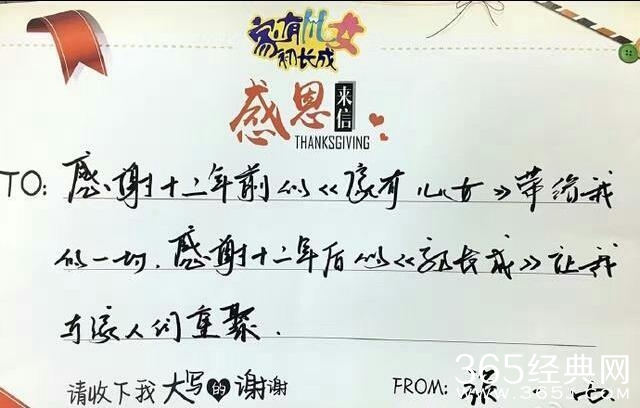 家有儿女
初长成
感恩来信
THANKSGIVING
TO: 感谢十二年前的《家有儿女》带给我
的一切，感谢十二年后的《初长成》让我
与家人们重聚.
请收下我大写的谢谢
FROM: 张一
365经典网